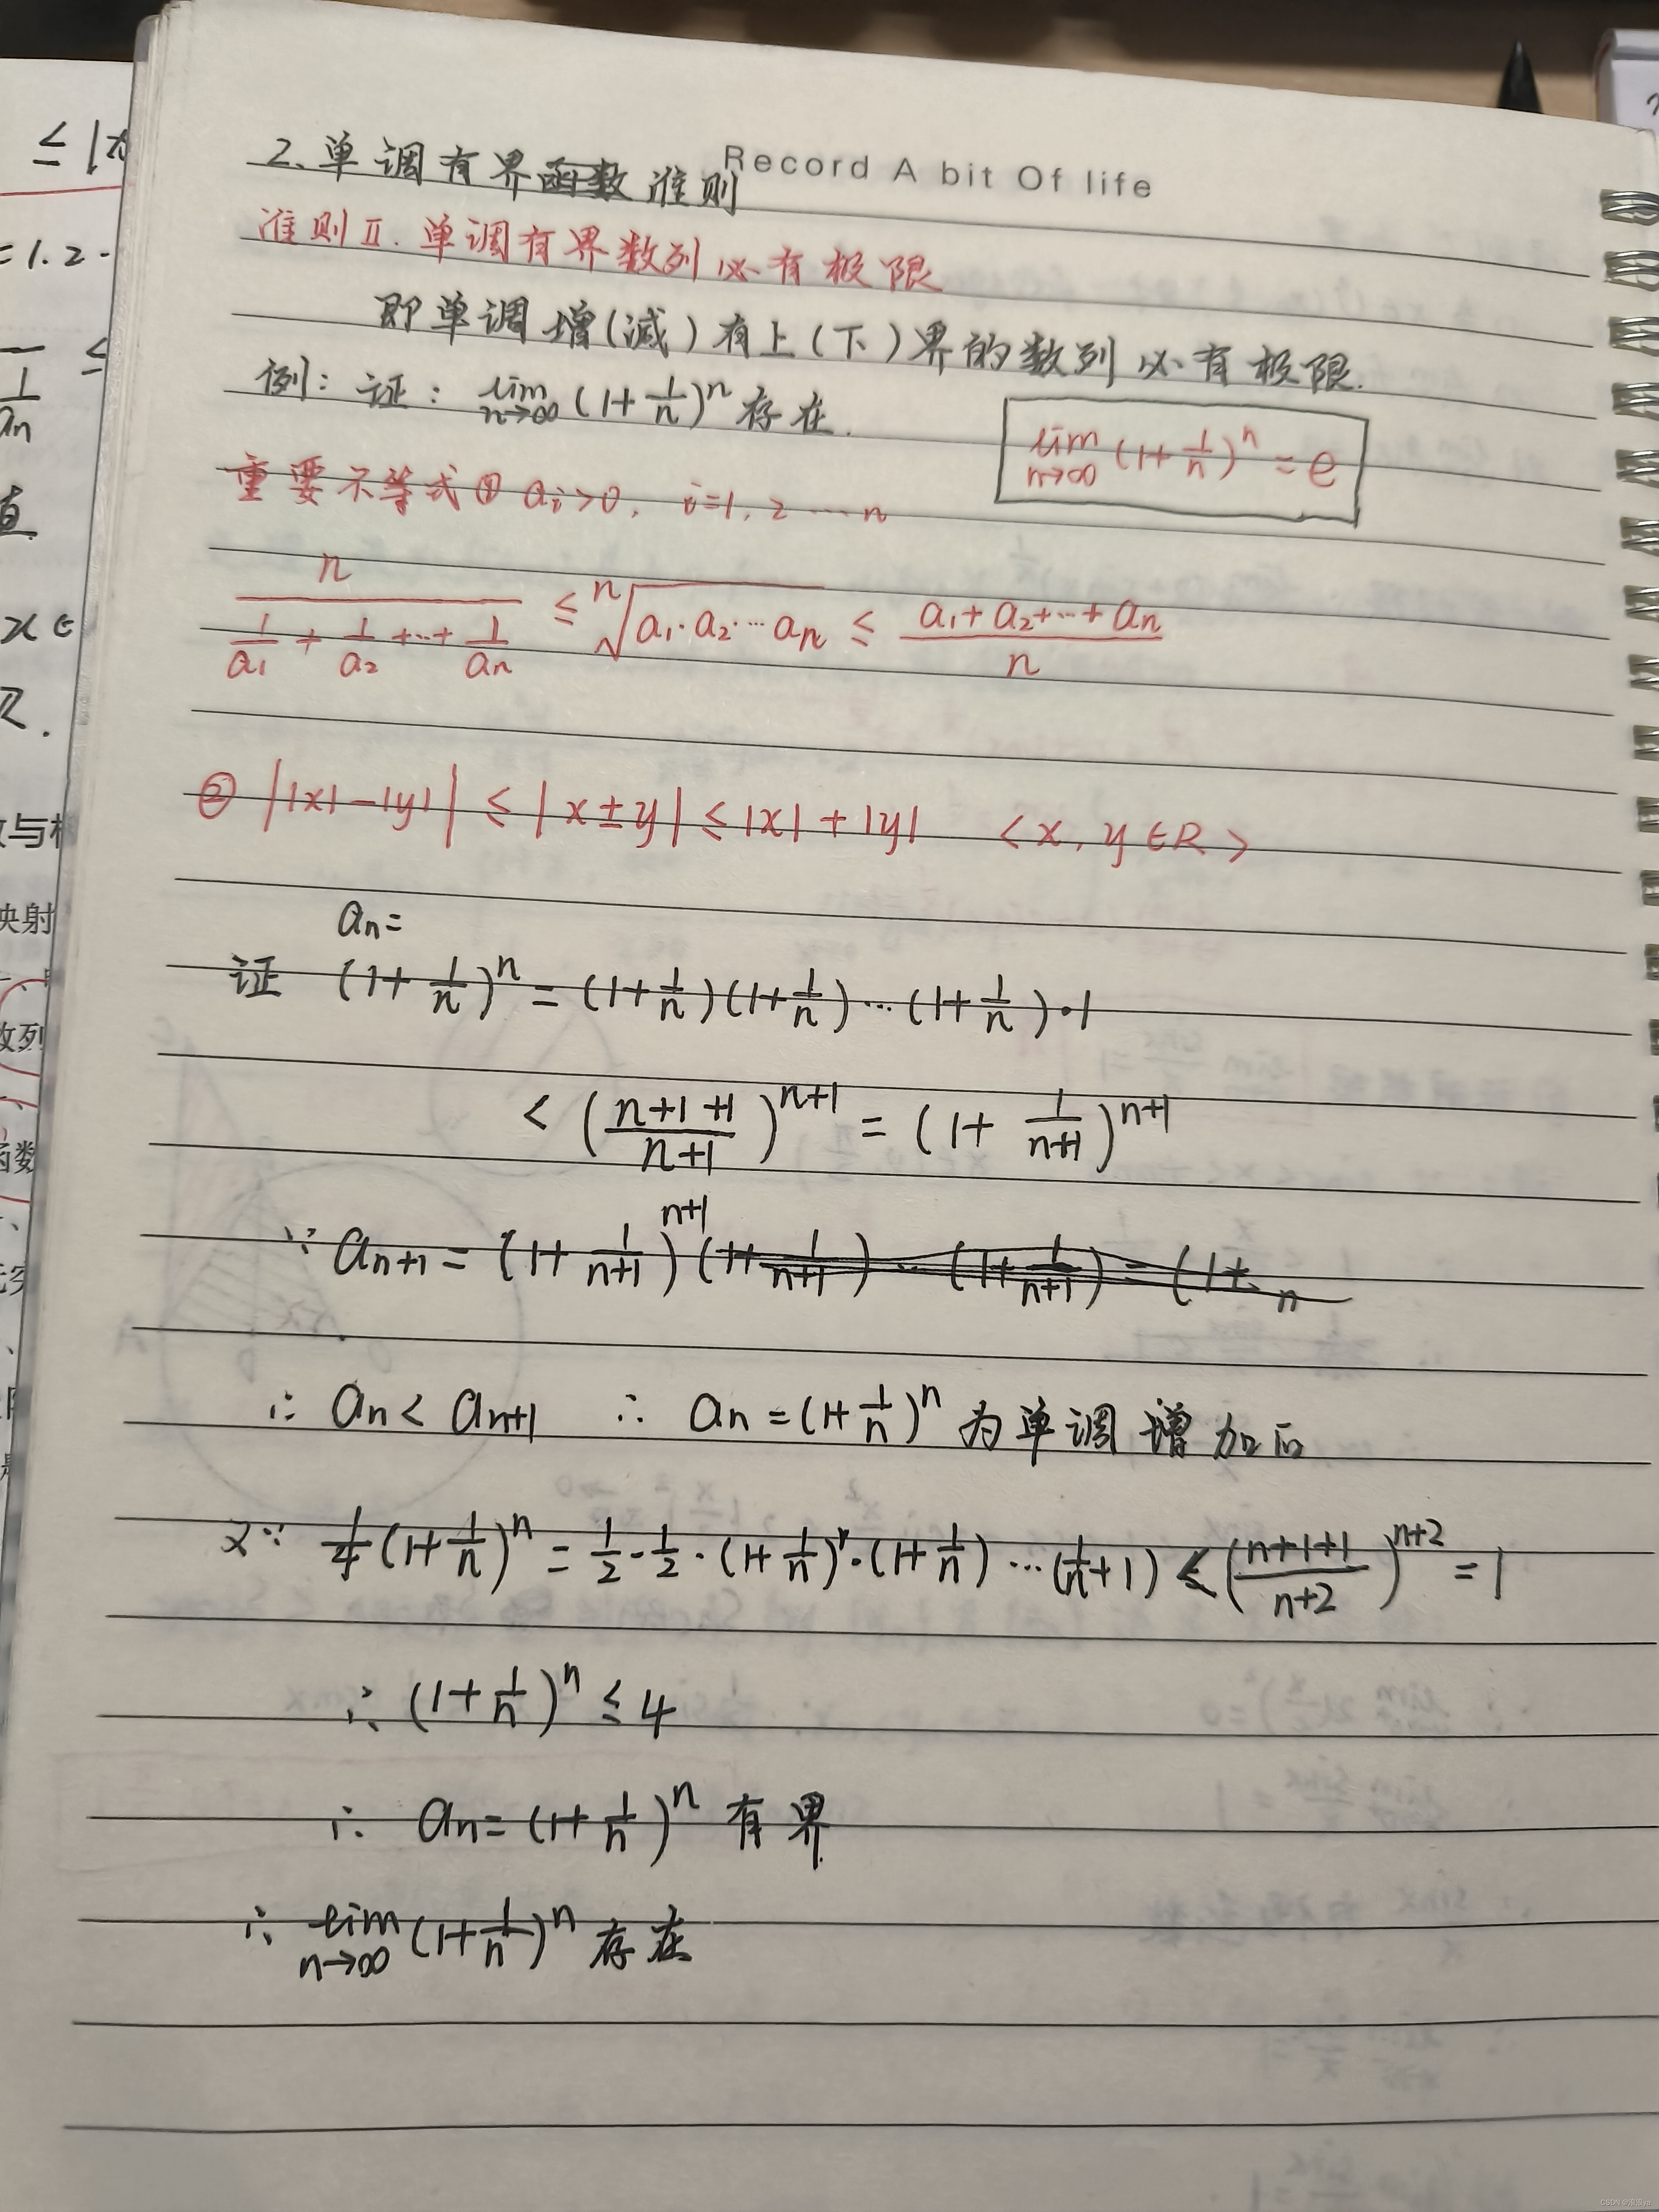 Record A bit Of life
2.单调有界函数准则
准则Ⅱ.单调有界数列必有极限
即单调增(减)有上(下)界的数列必有极限.
例:证: lim n→∞ (1+1/n)^n 存在.
lim n→∞ (1+1/n)^n = e
重要不等式① ai>0, i=1,2……n
n/(1/a1 + 1/a2 +…+ 1/an) ≤ ⁿ√(a1·a2·…an) ≤ (a1+a2+…+an)/n
② ||x|-|y|| ≤ |x±y| ≤ |x|+|y| <x,y∈R>
an=
证 (1+1/n)^n = (1+1/n)(1+1/n)…(1+1/n)·1
< ((n+1+1)/(n+1))^(n+1) = (1+1/(n+1))^(n+1)
∵ an+1 = (1+1/(n+1))^(n+1)
∴ an < an+1 ∴ an=(1+1/n)^n 为单调增加的
又∵ 1/4(1+1/n)^n = 1/2·1/2·(1+1/n)·(1+1/n)…(1/n+1) ≤ ((n+1+1)/(n+2))^(n+2) = 1
∴ (1+1/n)^n ≤ 4
∴ an=(1+1/n)^n 有界.
∴ lim n→∞ (1+1/n)^n 存在
≤
=1.2·
≤
1/an
值
x∈
R.
数与极
映射
数列
函数